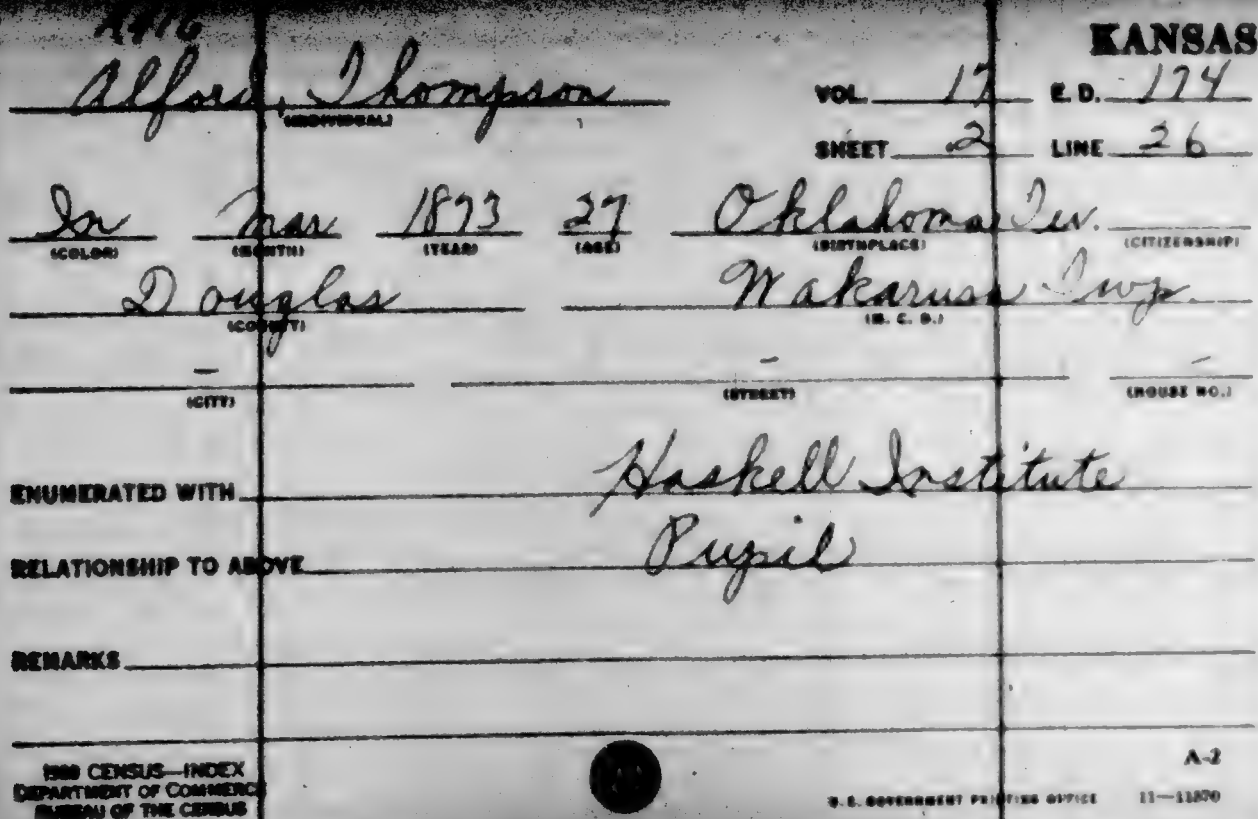 A416
KANSAS
Alford, Thompson
(INDIVIDUAL)
VOL. 17 E.D. 174
SHEET 2 LINE 26
In Mar 1873 27 Oklahoma Ter.
(COLOR) (MONTH) (YEAR) (AGE) (BIRTHPLACE) (CITIZENSHIP)
Douglas Wakarusa Twp.
(COUNTY) (M. C. D.)
- - -
(CITY) (STREET) (HOUSE NO.)
ENUMERATED WITH Haskell Institute
RELATIONSHIP TO ABOVE Pupil
REMARKS
1900 CENSUS—INDEX
DEPARTMENT OF COMMERCE
BUREAU OF THE CENSUS
A-2
U.S. GOVERNMENT PRINTING OFFICE 11—11870